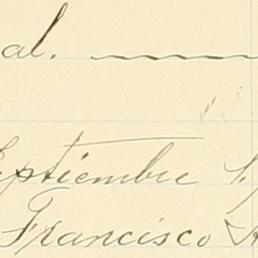 al.
Septiembre 1,
Francisco